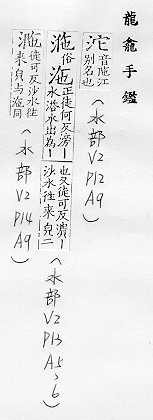 龍龕手鑑
沱 音陁江
別名也
(水部 V2 P12 A9)
湤 俗 沲 正徒何反滂丨
水潛水出為丨
也又徒可反瀢丨
沙水往來皃二
(水部 V2 P13 A5、6)
徒可反沙水往
来皃与沲同
(水部 V2 P14 A9)